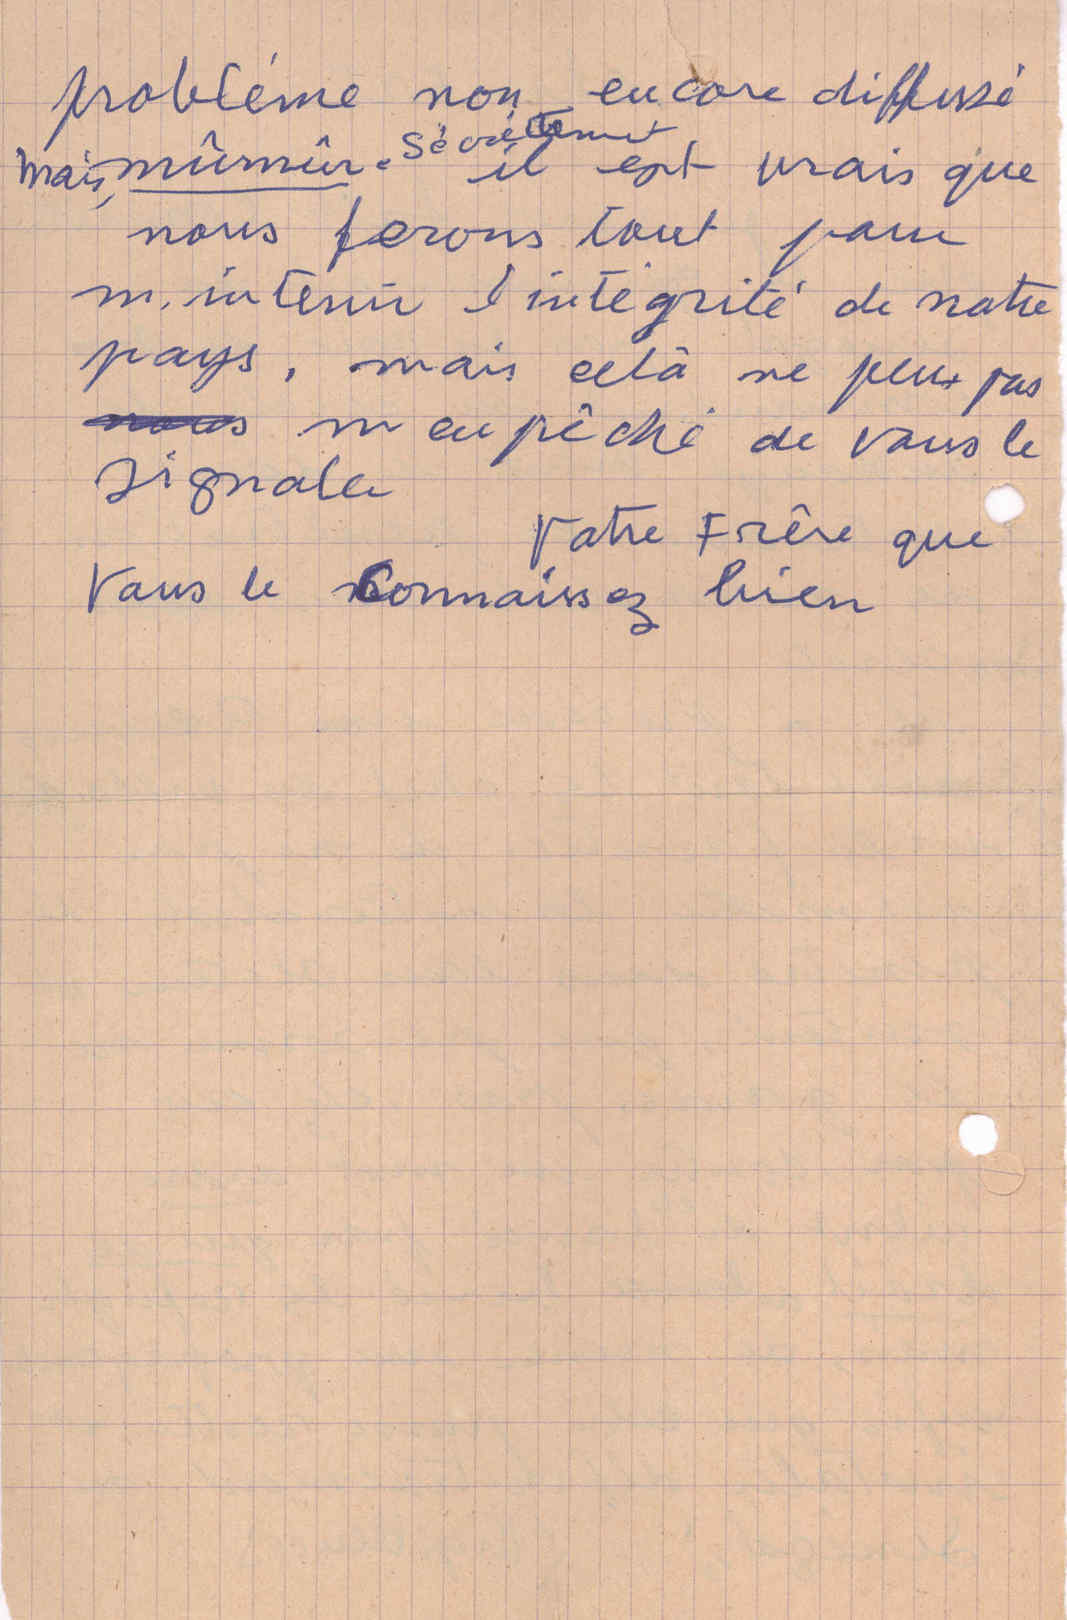 probléme non encore diffusé
Mais, mûrmûr. Sécrétement il est vrais que
nous ferons tout pour
m.intenir l'intégrité de notre
pays, mais celà ne peux pas
nous m enpêché de vous le
signaler
Votre Frêre que
Vous le connaissez bien